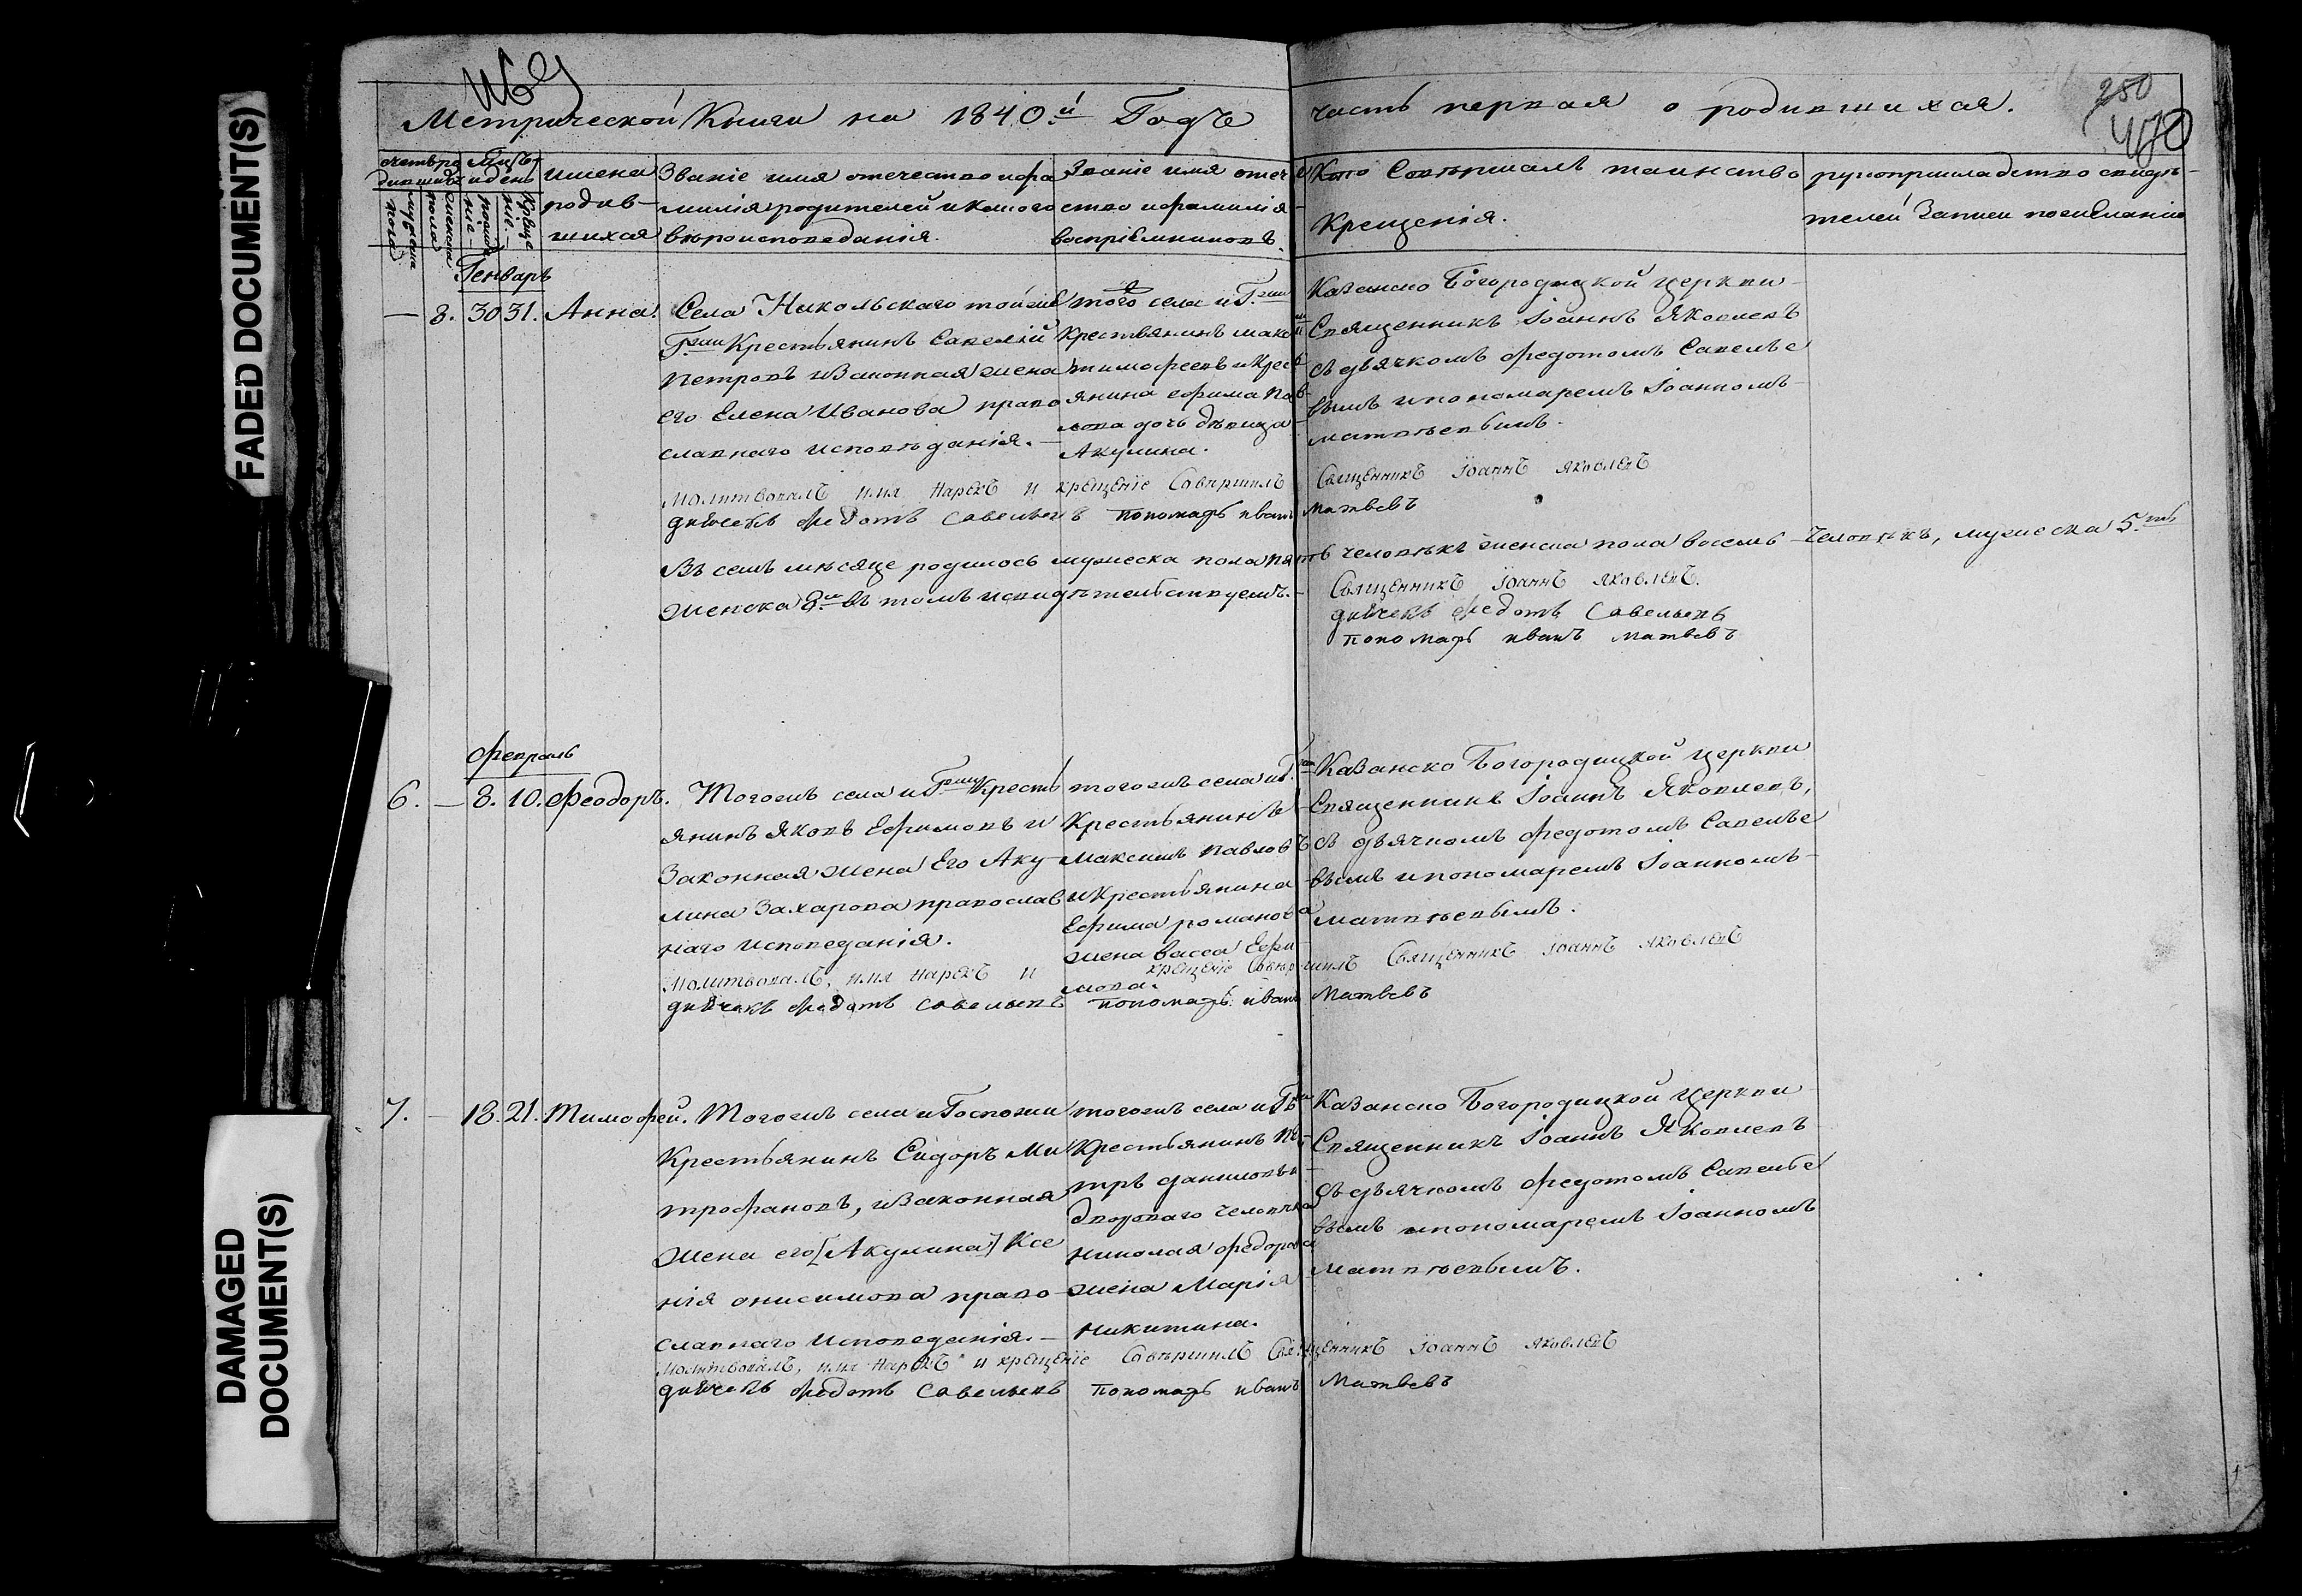 FADED DOCUMENT(S)
DAMAGED
DOCUMENT(S)
Метрической Книги на 1840.й Годъ
часть первая о родившихся.
250
470
счетъ ро
дившихся
мужеска
пола
женска
пола
Мцъ
и день
рожде
ніе
креще
ніе
имена
родив-
шихся
Званіе имя отечество и фа
милія родителей и какого
вѣроисповеданія.
Званіе имя отече
ство и фамилія
воспріемниковъ.
Кто Совѣршалъ таинство
Крещенія.
рукоприкладство свидѣ-
телей Записи по желанію
Генварь
— 8. 30 31. Анна.
Села Никольскаго той же
Г.жи Крестьянинъ Савелій
Петровъ и Законная жена
его Елена Иванова право
славнаго исповѣданія.—
того села и Г.жи
Крестьянинъ макси
тимофеевъ и Крест
янина ефима Пав-
лова дочь дѣвица
Акулина.
Казанско Богородицкой церкви
Священникъ Іоаннъ Яковлевъ
съ дьячкомъ Федотомъ Савелье
вымъ и пономаремъ Іоанномъ
матвѣевымъ.
Молитвовалъ имя нарекъ и крещеніе Совершилъ Священникъ Іоаннъ Яковлевъ
дьячекъ Федотъ Савельевъ пономарь иванъ Матвевъ
Въ семъ мѣсяце родилось мужеска пола пять человѣкъ женска пола восемь человѣкъ, мужеска 5.ть
женска 8.мь въ томъ и свидѣтельствуемъ.—
Священникъ Іоаннъ Яковлевъ.
дьячекъ Федотъ Савельевъ
пономарь иванъ матвевъ
Февраль
6. — 8. 10. Феодоръ.
Тогожъ села и Г.жи Кресть
янинъ Яковъ Ефимовъ и
Законная жена Его Аку
лина Захарова православ
наго исповеданія.
тогожъ села и Г.жи
Крестьянинъ
Максимъ Павловъ
и Крестьянина
Ефима романова
жена васса Ефи-
мова.
Казанско Богородицкой церкви
Священникъ Іоаннъ Яковлевъ,
съ дьячкомъ Федотомъ Савелье
вымъ и пономаремъ Іоанномъ
матвѣевымъ.
Молитвовалъ, имя нарекъ и крещеніе Совершилъ Священникъ Іоаннъ Яковлевъ
дьячекъ Федотъ Савельевъ пономарь иванъ Матвевъ
7. — 18. 21. Тимофей.
Тогожъ села и Госпожи
Крестьянинъ Сидоръ Ми
трофановъ, и Законная
жена его [Акулина] Ксе
нія онисимова право-
славнаго исповеданія.—
тогожъ села и Г.жи
Крестьянинъ Пе-
тръ даниловъ и
двороваго человѣка
николая федорова
жена Марія
никитина.
Казанско Богородицкой церкви
Священникъ Іоаннъ Яковлевъ
съ дьячкомъ Федотомъ Савелье
вымъ и пономаремъ Іоанномъ
матвѣевымъ.
Молитвовалъ, имя нарекъ и крещеніе Совершилъ Священникъ Іоаннъ Яковлевъ
дьячекъ Федотъ Савельевъ пономарь иванъ Матвевъ